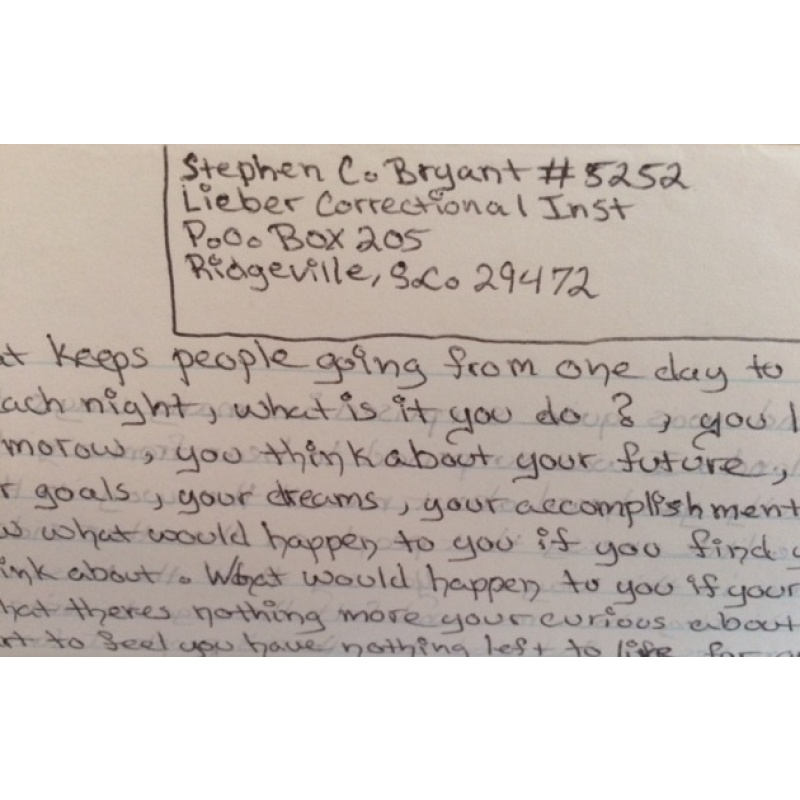 Stephen C. Bryant # 5252
Lieber Correctional Inst
P.O. Box 205
Ridgeville, S.C. 29472
at keeps people going from one day to
ach night, what is it you do ?, you l
morow, you think about your future,
r goals, your dreams, your accomplishment
w what would happen to you if you find y
ink about. What would happen to you if your
hat theres nothing more your curious about
rt to feel you have nothing left to life for